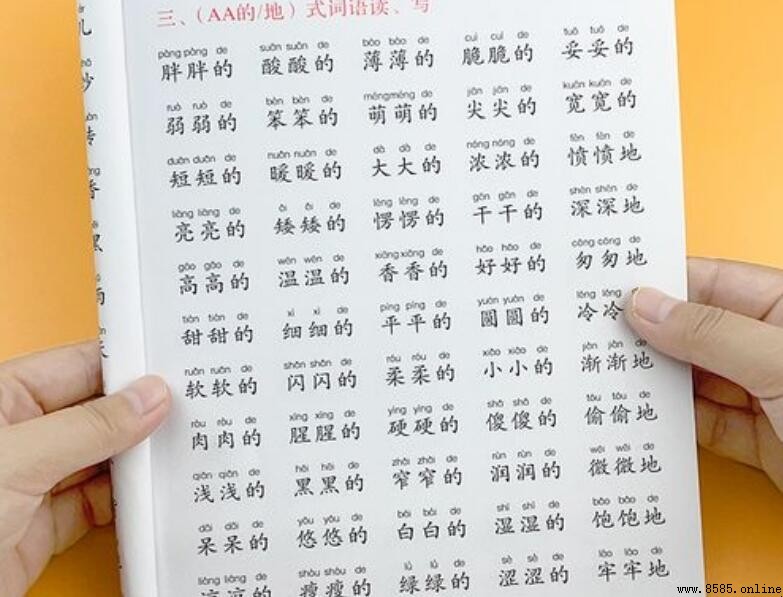 三、（AA的/地）式词语读、写
pàng pàng de suān suān de báo báo de cuì cuì de tuǒ tuǒ de
胖胖的 酸酸的 薄薄的 脆脆的 妥妥的
ruò ruò de bèn bèn de méng méng de jiān jiān de kuān kuān de
弱弱的 笨笨的 萌萌的 尖尖的 宽宽的
duǎn duǎn de nuǎn nuǎn de dà dà de nóng nóng de fèn fèn de
短短的 暖暖的 大大的 浓浓的 愤愤地
liàng liàng de ǎi ǎi de lèng lèng de gān gān de shēn shēn de
亮亮的 矮矮的 愣愣的 干干的 深深地
gāo gāo de wēn wēn de xiāng xiāng de hǎo hǎo de cōng cōng de
高高的 温温的 香香的 好好的 匆匆地
tián tián de xì xì de píng píng de yuán yuán de lěng lěng
甜甜的 细细的 平平的 圆圆的 冷冷
ruǎn ruǎn de shǎn shǎn de róu róu de xiǎo xiǎo de jiàn jiàn de
软软的 闪闪的 柔柔的 小小的 渐渐地
ròu ròu de xīng xīng de yìng yìng de shǎ shǎ de tōu tōu de
肉肉的 腥腥的 硬硬的 傻傻的 偷偷地
qiǎn qiǎn de hēi hēi de zhǎi zhǎi de rùn rùn de wēi wēi de
浅浅的 黑黑的 窄窄的 润润的 微微地
dāi dāi de yōu yōu de bái bái de shī shī de bǎo bǎo de
呆呆的 悠悠的 白白的 湿湿的 饱饱地
liáng liáng de shòu shòu de lǜ lǜ de sè sè de láo láo de
凉凉的 瘦瘦的 绿绿的 涩涩的 牢牢地
www.8585.online